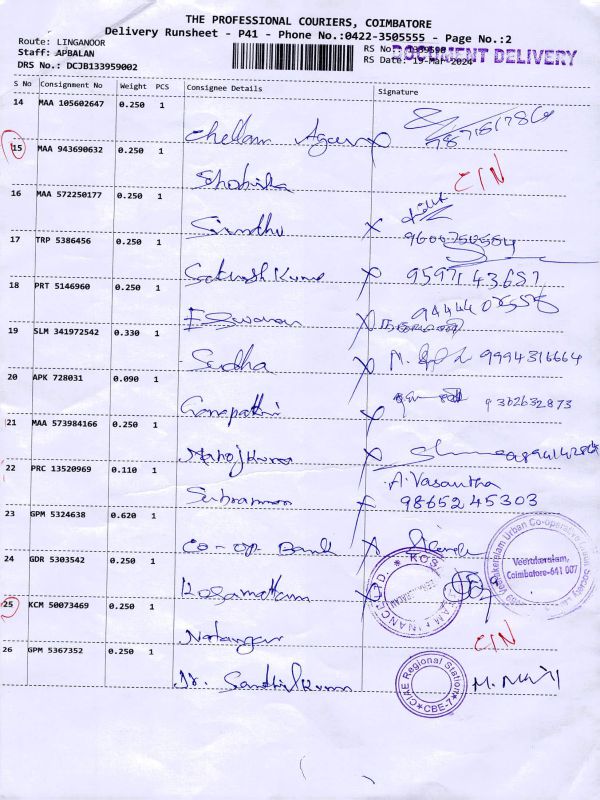 THE PROFESSIONAL COURIERS, COIMBATORE
Delivery Runsheet - P41 - Phone No.:0422-3505555 - Page No.:2
Route: LINGANOOR
Staff: APBALAN
DRS No.: DCJB133959002
RS No.:
DOCUMENT DELIVERY
RS Date: 19-Mar-2024
S No Consignment No Weight PCS Consignee Details Signature
14 MAA 105602647 0.250 1
Chellam
15 MAA 943690632 0.250 1
Shobika C/N
16 MAA 572250177 0.250 1
Sindhu X
17 TRP 5386456 0.250 1
Satheesh Kumar X 9597143687
18 PRT 5146960 0.250 1
Eswaran X
19 SLM 341972542 0.330 1
Sudha X M. 9994316664
20 APK 728031 0.090 1
Ganapathi X 9362632873
21 MAA 573984166 0.250 1
Manoj Kumar X
22 PRC 13520969 0.110 1
A. Vasantha
Subraman X 9865245303
23 GPM 5324638 0.620 1
Co-op Bank X
Veerakeralam,
Coimbatore-641 007
24 GDR 5303542 0.250 1
Kosamattam X
25 KCM 50073469 0.250 1
Natarajan C/N
26 GPM 5367352 0.250 1
Dr. Sendhil Kumar M.
CIAE Regional Station
CBE-7